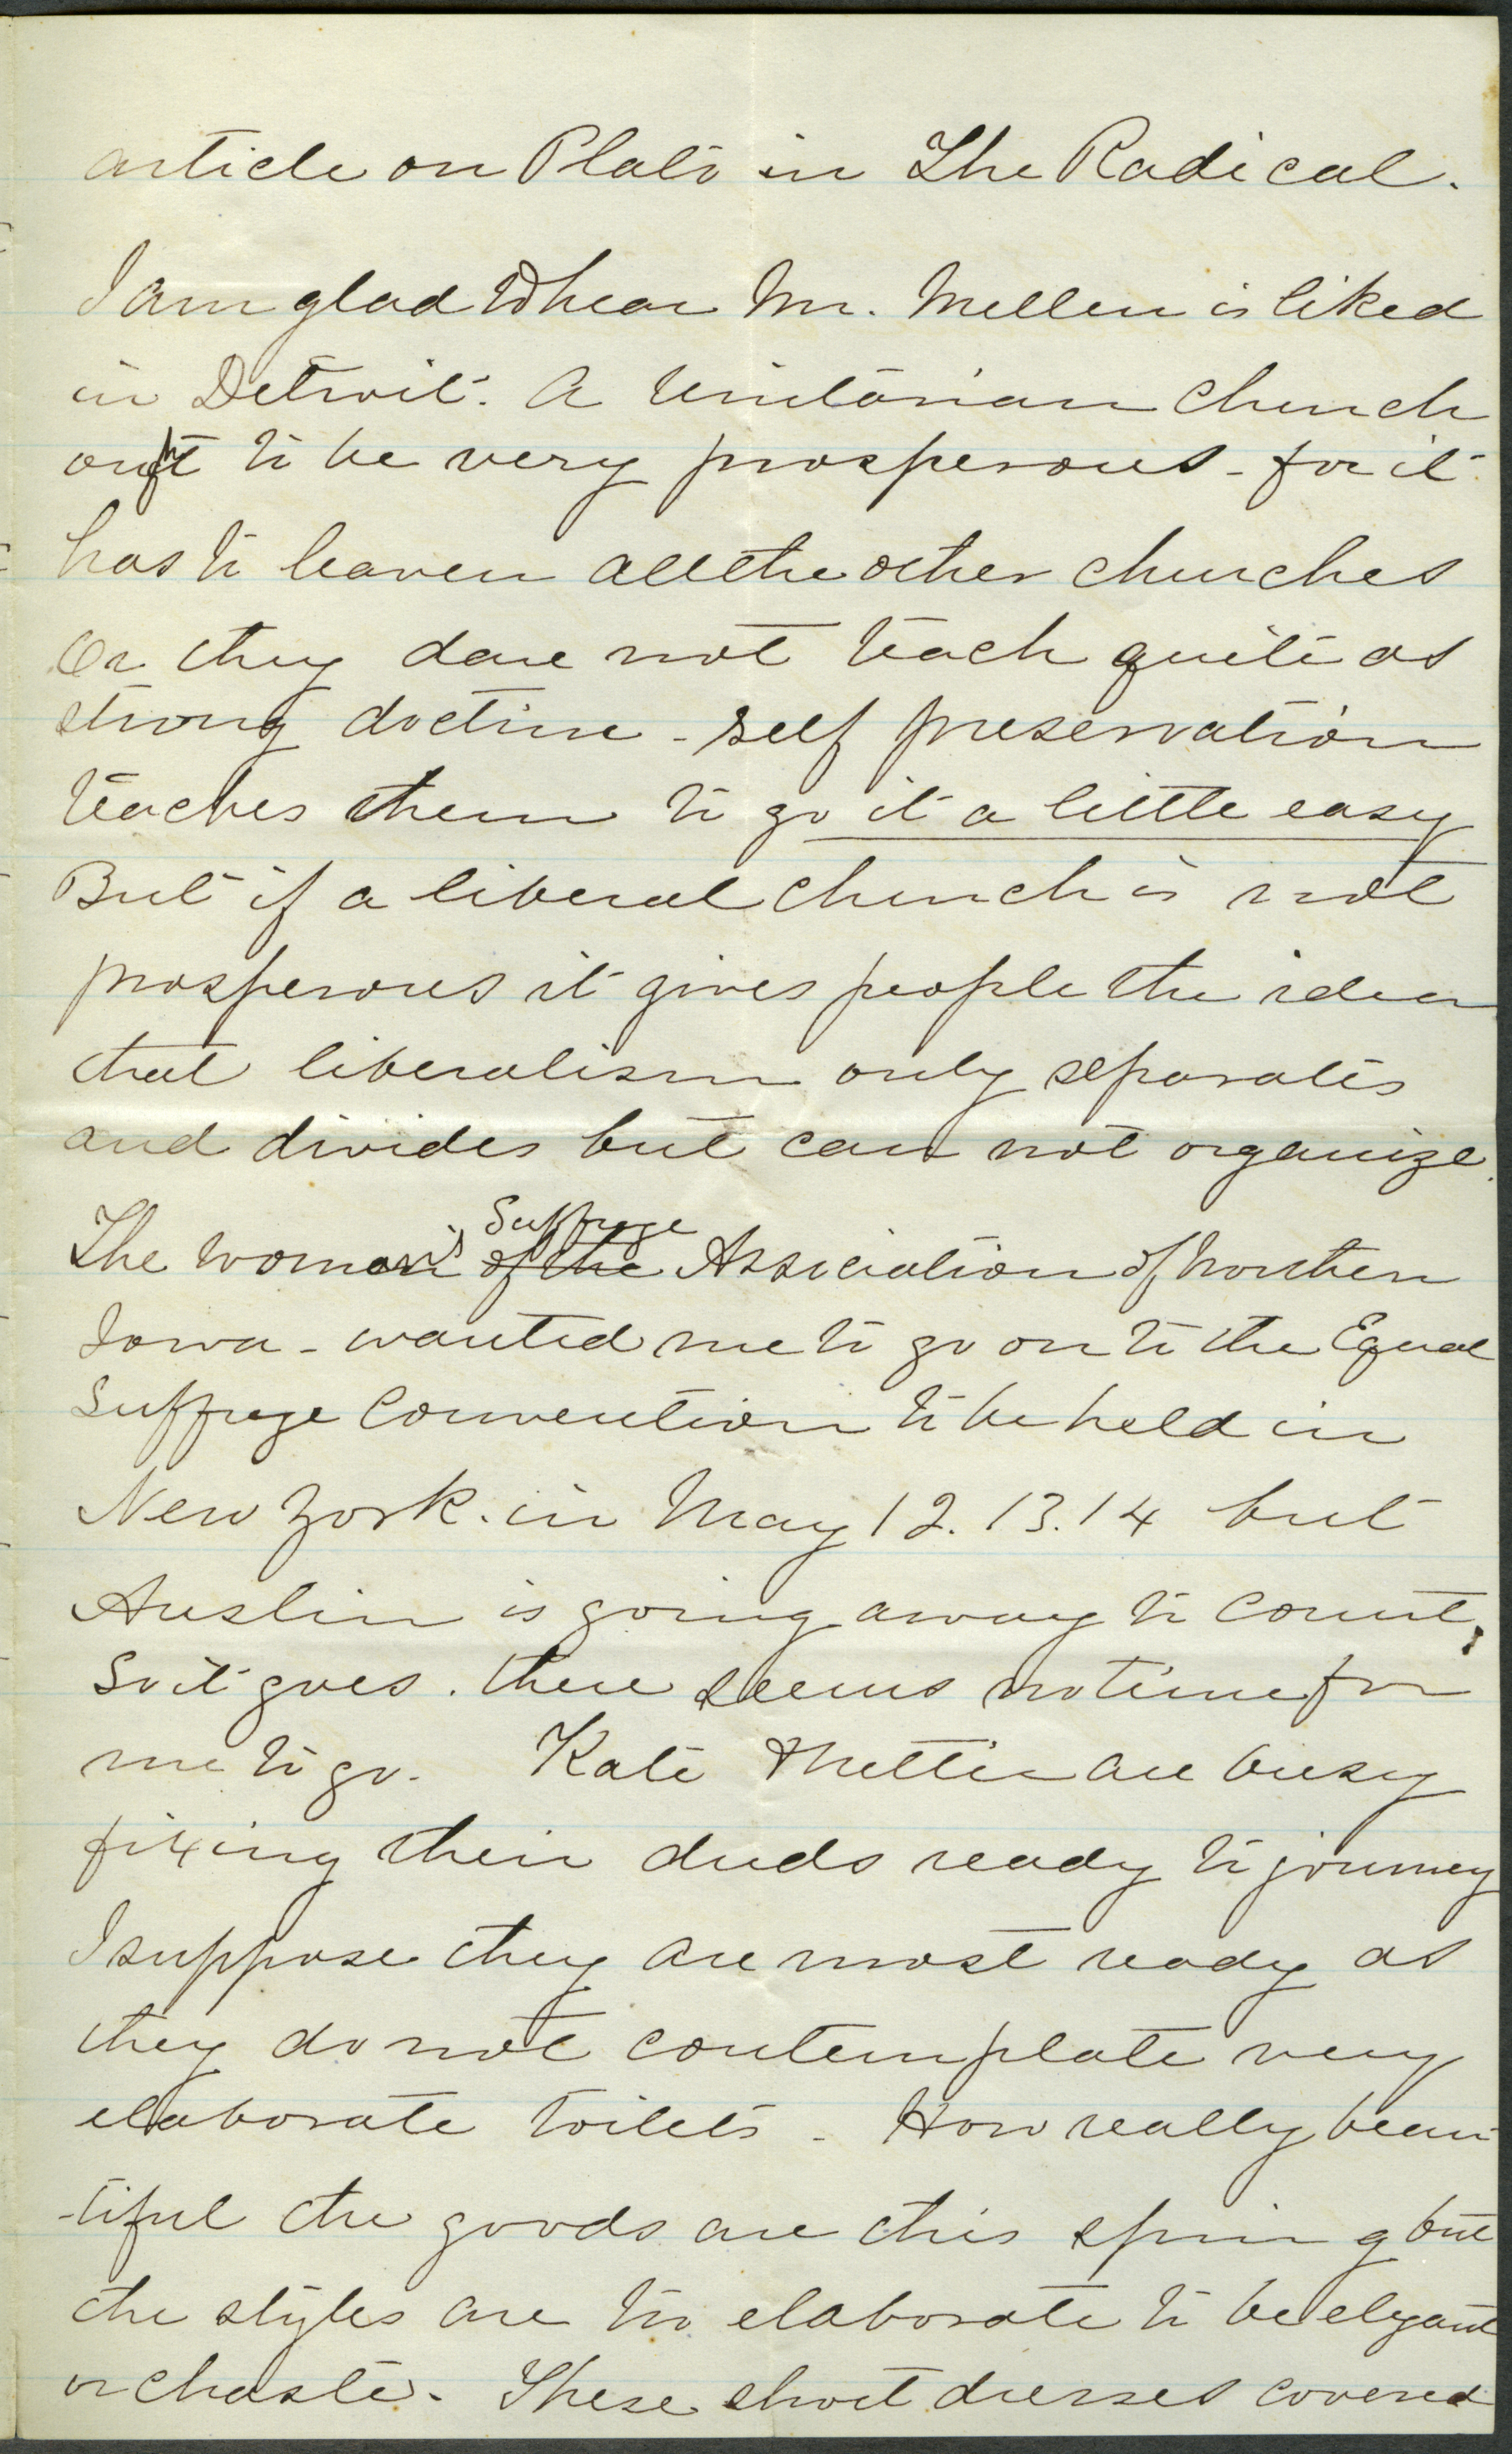 article on Plato in The Radical.
I am glad to hear Mr. Mellen is liked
in Detroit. A Unitarian church
ought to be very prosperous - for it
has to leaven all the other churches
Or they dare not teach quite as
strong doctrine - self preservation
teaches them to go it a little easy
But if a liberal church is not
prosperous it gives people the idea
that liberalism only separates
and divides but can not organize.
The Woman's of the Suffrage Association of Northern
Iowa - wanted me to go on to the Equal
Suffrage Convention to be held in
New York. in May 12. 13. 14 but
Austin is going away to Court,
So it goes. there seems no time for
me to go. Kate & Mettie are busy
fixing their duds ready to journey
I suppose they are most ready as
they do not contemplate very
elaborate toilets - How really beau
-tiful the goods are this spring but
the styles are too elaborate to be elegant
or chaste. These short dresses covered